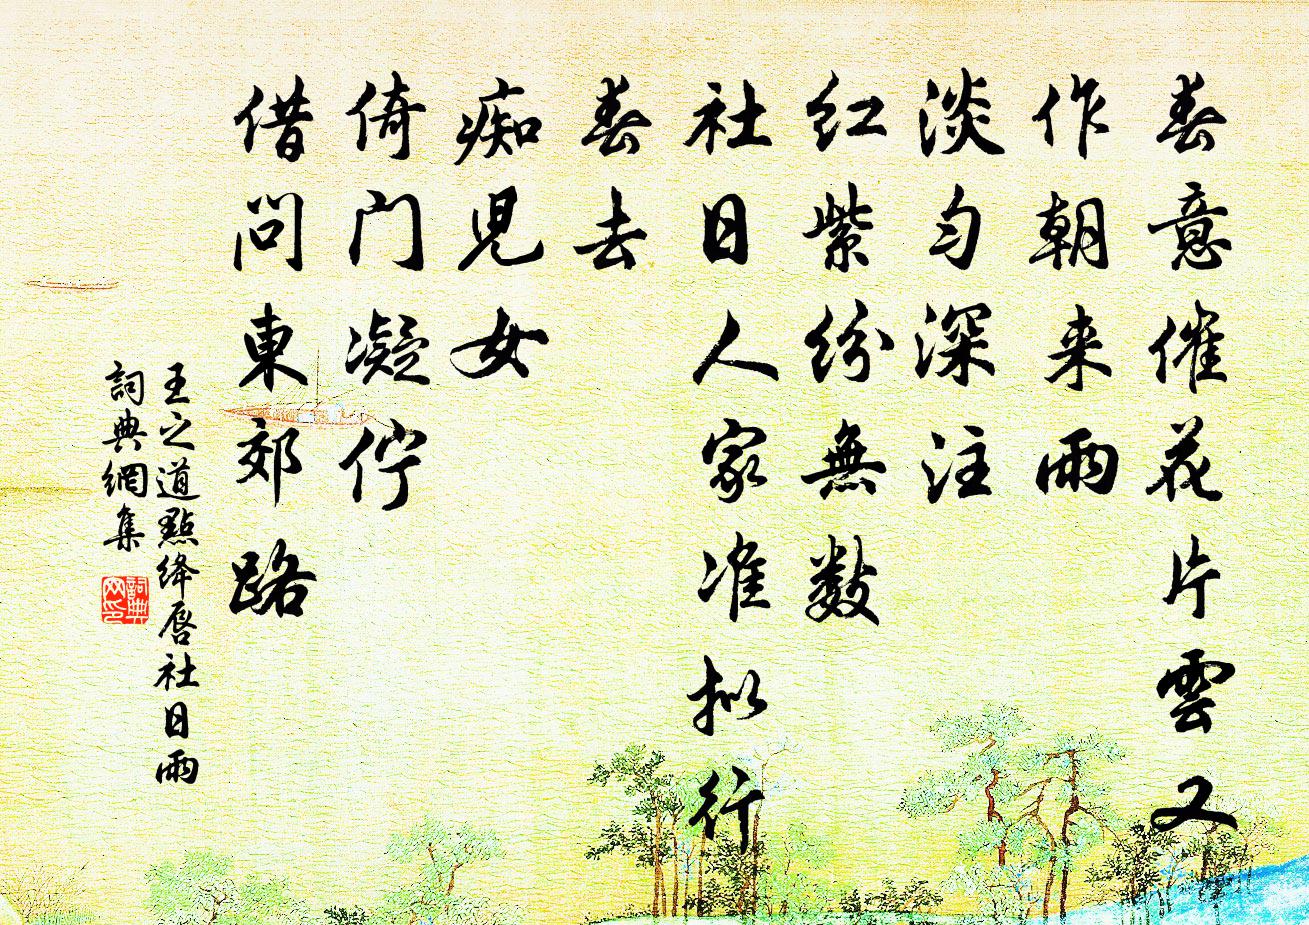 春意催花片雲又
作朝来雨
淡匀深注
红紫纷無數
社日人家准拟行
春去
痴児女
倚门凝伫
借问東郊路
王之道點绛唇社日雨
詞典網集
詞典網印